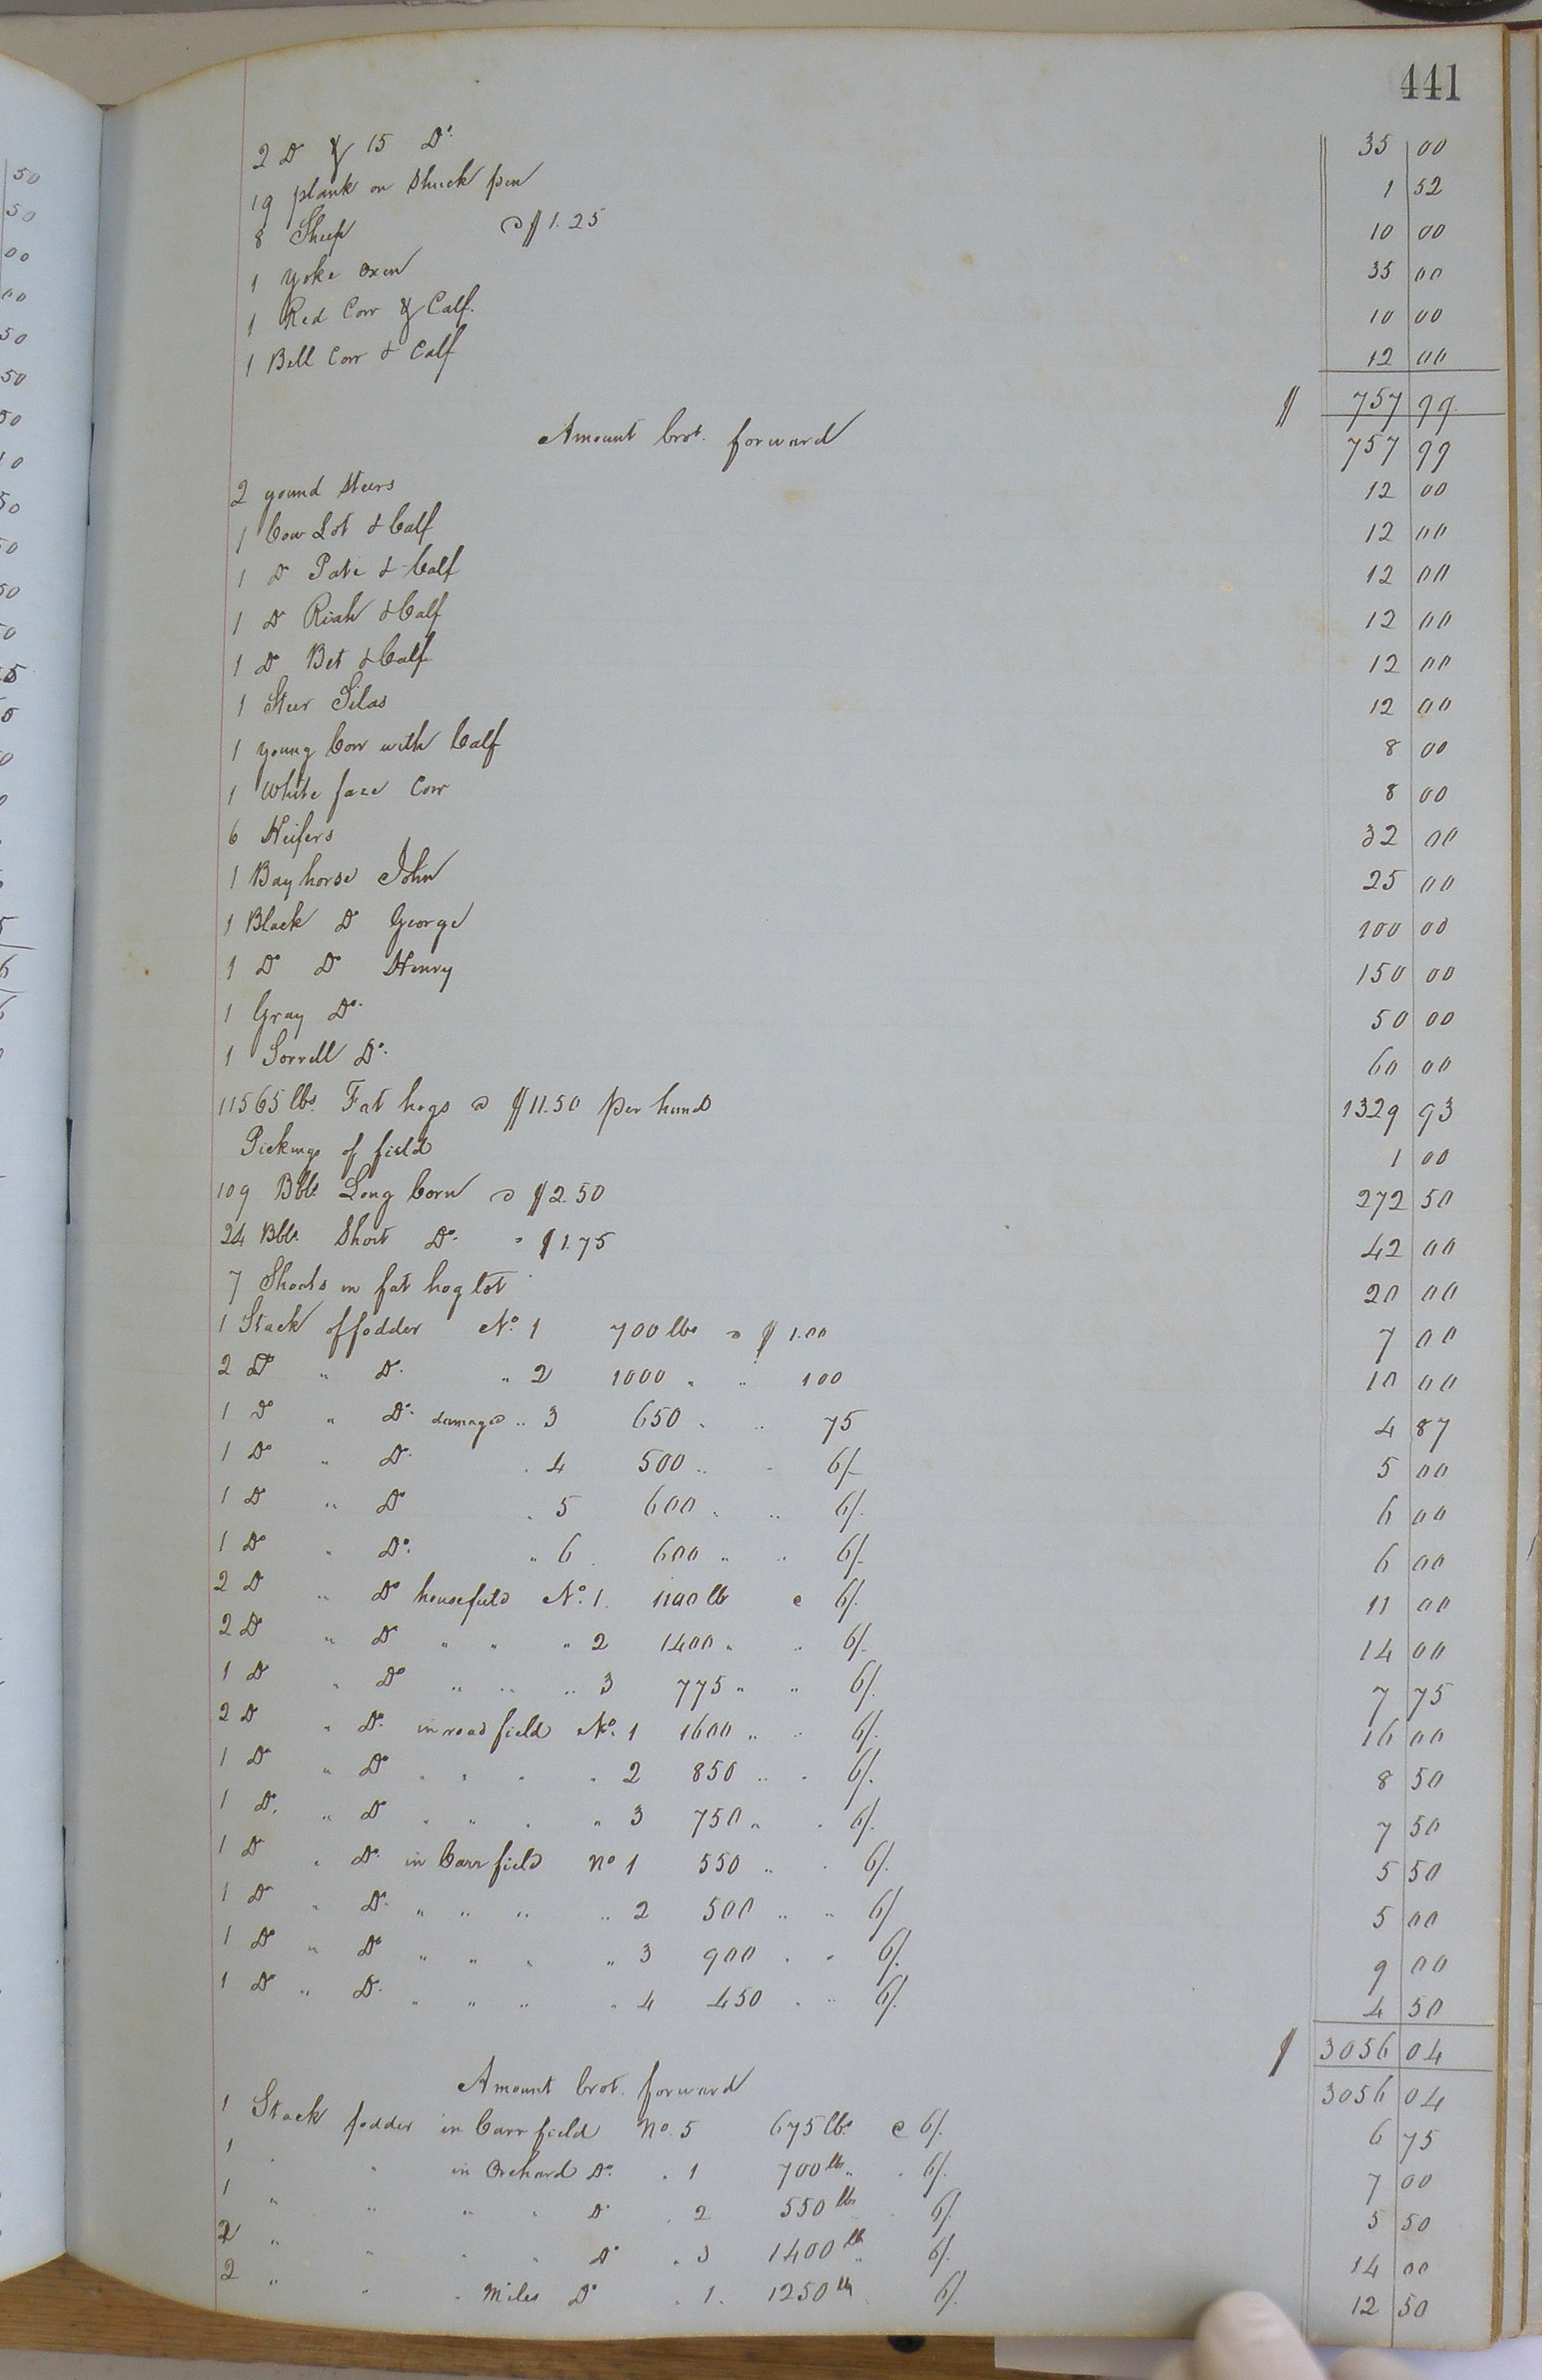 441
2 Do & 15 Do. 35 00
19 plank on Shuck pen 1 52
8 Sheep @ $1.25 10 00
1 Yoke oxen 35 00
1 Red Cow & Calf. 10 00
1 Bell Cow & Calf 12 00
$ 757 99.
Amount brot. forward 757 99
2 yound Steers 12 00
1 Cow Lot & Calf 12 00
1 Do Pate & Calf 12 00
1 Do Riah & Calf 12 00
1 Do Bet & Calf 12 00
1 Steer Silas 12 00
1 young Cow with Calf 8 00
1 White face Cow 8 00
6 Heifers 32 00
1 Bay horse John 25 00
1 Black Do George 100 00
1 Do Do Henry 150 00
1 Gray Do. 50 00
1 Sorrell Do. 60 00
11565 lbs. Fat hogs @ $11.50 per hund 1329 93
Pickings of field 1 00
109 Bbls Long Corn @ $2.50 272 50
24 Bbls. Short Do. " $1.75 42 00
7 Shoats in fat hog lot 20 00
1 Stack of fodder No. 1 700 lbs @ $1.00 7 00
2 Do " Do. " 2 1000 " " 100 10 00
1 Do " Do. damaged " 3 650 " " 75 4 87
1 Do " Do. " 4 500 " " 6/- 5 00
1 Do " Do " 5 600 " " 6/. 6 00
1 Do " Do. " 6 600 " " 6/- 6 00
2 Do " Do housefield No. 1. 1100 lb @ 6/. 11 00
2 Do " Do " " " 2 1400 " " 6/- 14 00
1 Do " Do " " " 3 775 " " 6/. 7 75
2 Do " Do. in road field No. 1 1600 " " 6/. 16 00
1 Do " Do " " " " 2 850 " " 6/. 8 50
1 Do. " Do " " " " 3 750 " " 6/. 7 50
1 Do " Do. in Carr field No 1 550 " " 6/. 5 50
1 Do " Do. " " " " 2 500 " " 6/ 5 00
1 Do " Do " " " " 3 900 " " 6/. 9 00
1 Do " Do. " " " " 4 450 " " 6/. 4 50
$ 3056 04
Amount brot. forward 3056 04
1 Stack fodder in Carr field No. 5 675 lbs. @ 6/. 6 75
1 " " in Orchard Do. " 1 700 lbs " " 6/. 7 00
1 " " " " Do " 2 550 lbs 6/. 5 50
2 " " " " Do " 3 1400 lb " 6/. 14 00
2 " " " Miles Do " 1. 1250 lb 6/. 12 50